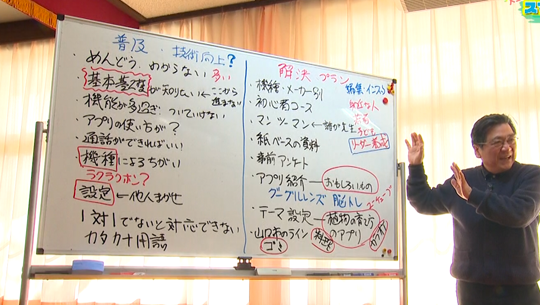 普及・技術向上?
・めんどう、わからない
・基本基礎が知りたい←ここから進まない
・機能が多過ぎ ついていけない
・アプリの使い方が?
・通話ができればいい
・機種によるちがい
ラクラクホン?
・設定←他人まかせ
1対1でないと対応できない
カタカナ用語
解決プラン
・機種・メーカー別
・初心者コース
・マンツーマン←誰が先生
リーダー養成
・紙ベースの資料
・事前アンケート
・アプリ紹介―おもしろいもの
グーグルレンズ 脳トレ
・テーマ設定―植物の育て方のアプリ
・山口市のライン
ゴミ